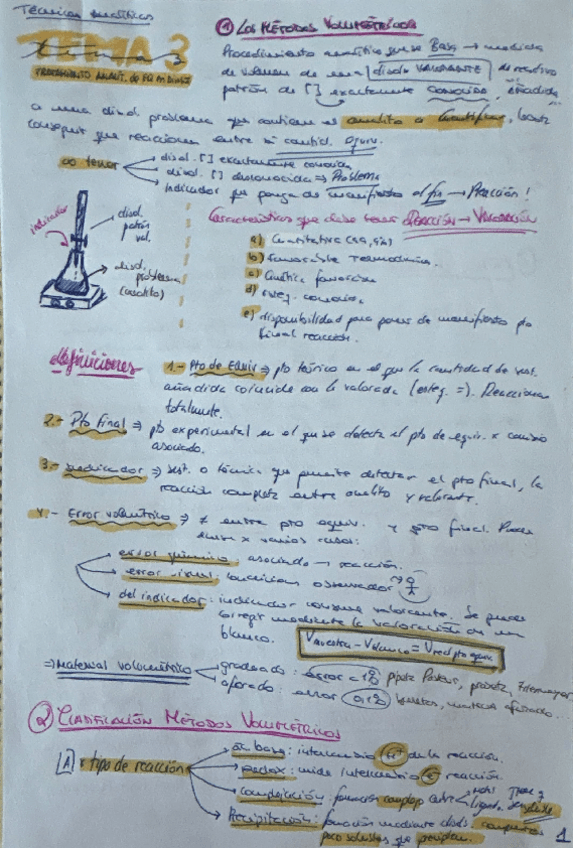 Técnicas analíticas
TEMA 3
① LOS MÉTODOS VOLUMÉTRICOS
Procedimiento analítico que se Basa → medida
de volumen de una disolv VALORANTE de reactivo
patrón de [ ] exactamente conocida, añadida
a una disol. problema que contiene el analito a cuantificar, hasta
conseguir que reaccionen entre sí cantid. equiv.
tener
disol. [ ] exactamente conocida
disol. [ ] desconocida ⇒ Problema
indicador que ponga de manifiesto el fin → Reacción!
indicador
disol. patrón val.
disol. problema (analito)
Características que debe tener REACCIÓN → VALORACIÓN
a) Cuantitativa
b) Favorable Termodinám.
c) Cinética favorecida
d) esteq. conocida
e) disponibilidad para poner de manifiesto pto
final reacción.
definiciones
1.- Pto de Equiv ⇒ pto teórico en el que la cantidad de
añadida coincide con la valorada (esteq. =). Reacciona
totalmente.
2.- Pto final ⇒ pto experimental en el que se detecta el pto de equiv. x cambio
asociado.
3.- Indicador ⇒ sust. o técnica que permite detectar el pto final, la
reacción completa entre analito y valorante.
4.- Error volumétrico ⇒ ≠ entre pto equiv. y pto final. Puede
x varias
error químico: asociado → reacción.
error visual: condición observador
del indicador: indicador consume valorante. Se puede
corregir mediante la valoración de un
blanco.
Vmuestra - Vblanco = Vreal pto equiv
⇒ Material volumétrico
graduado: error 1% pipeta Pasteur, probeta, Erlenmeyer
aforado: error 0,1% buretas, matraz aforado...
② CLASIFICACIÓN MÉTODOS VOLUMÉTRICOS
[A] x tipo de reacción
ác base: intercambio H⁺ de la reacción.
redox: mide intercambio e⁻ reacción.
complejación: formación complejo entre metal y ligando
Precipitación: formación mediante disol. compuestos
poco solubles que precipitan.
1